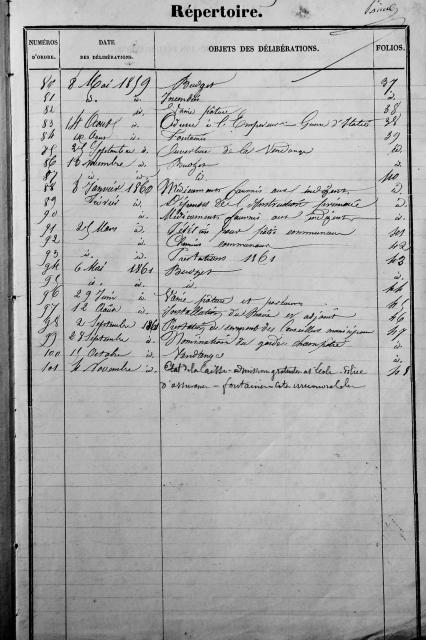 Répertoire.
NUMÉROS D'ORDRE. DATE DES DÉLIBÉRATIONS. OBJETS DES DÉLIBÉRATIONS. FOLIOS.
80 8 Mai 1859 Budget 37
81 id. id. id.
82 id. Vaine pâture 38
83 14 Août id. à l'Empereur Guerre d'Italie 38
84 id. Fontaine 39
85 25 Septembre id. Ouverture de la Vendange id.
86 13 novembre id. Budget id.
87 id. id. id. 40
88 8 Janvier 1860 Médicaments fournis aux indigents id.
89 Février id. primaire id.
90 id. Médicaments fournis aux indigents id.
91 25 Mars id. communaux 41
92 id. Chemins communaux 42
93 id. id. Prestations 1861 43
94 6 Mai 1861 Budget id.
95 id. id. id. 44
96 29 Juin id. Vaine pâture et parcours 45
97 12 Août id. Installation du Maire et adjoint 46
98 2 Septembre 1860 Prestation de serment des Conseillers municipaux 47
99 23 Septembre id. Nomination du garde champêtre id.
100 1er Octobre id. Vendange id.
101 4 Novembre id. Etat de la Caisse - admission gratuite à l'école - Police 48